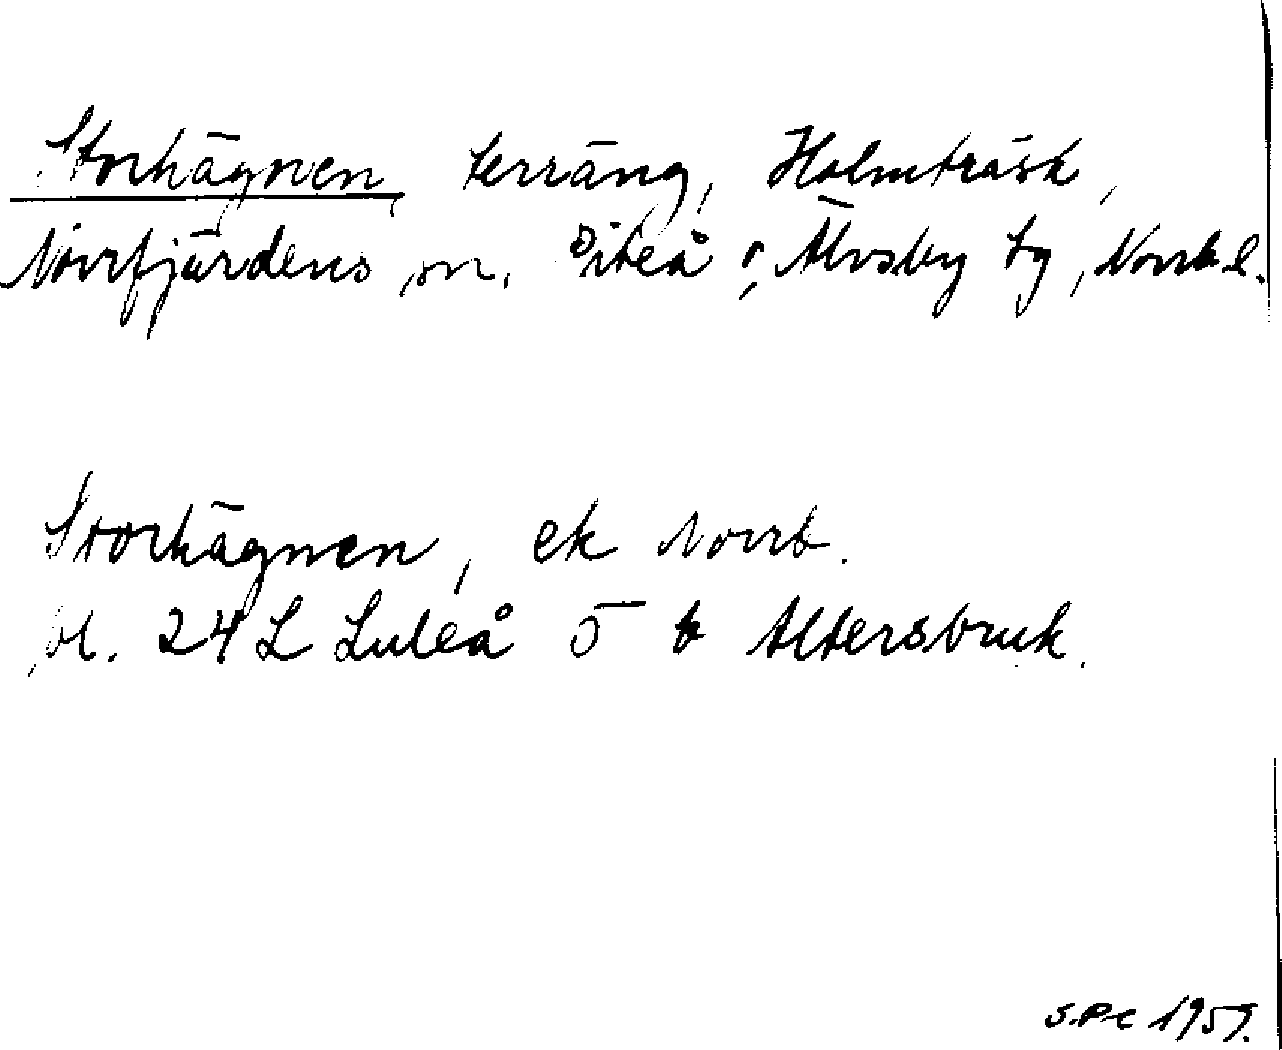 Storhägnen, terräng, Holmträsk,
Norrfjärdens sn. Piteå o, Älvsby tg, Norrb l.
Storhägnen, ek Norrb.
bl. 24 L Luleå Ö b Altersbruk.
S.P-C 1959.